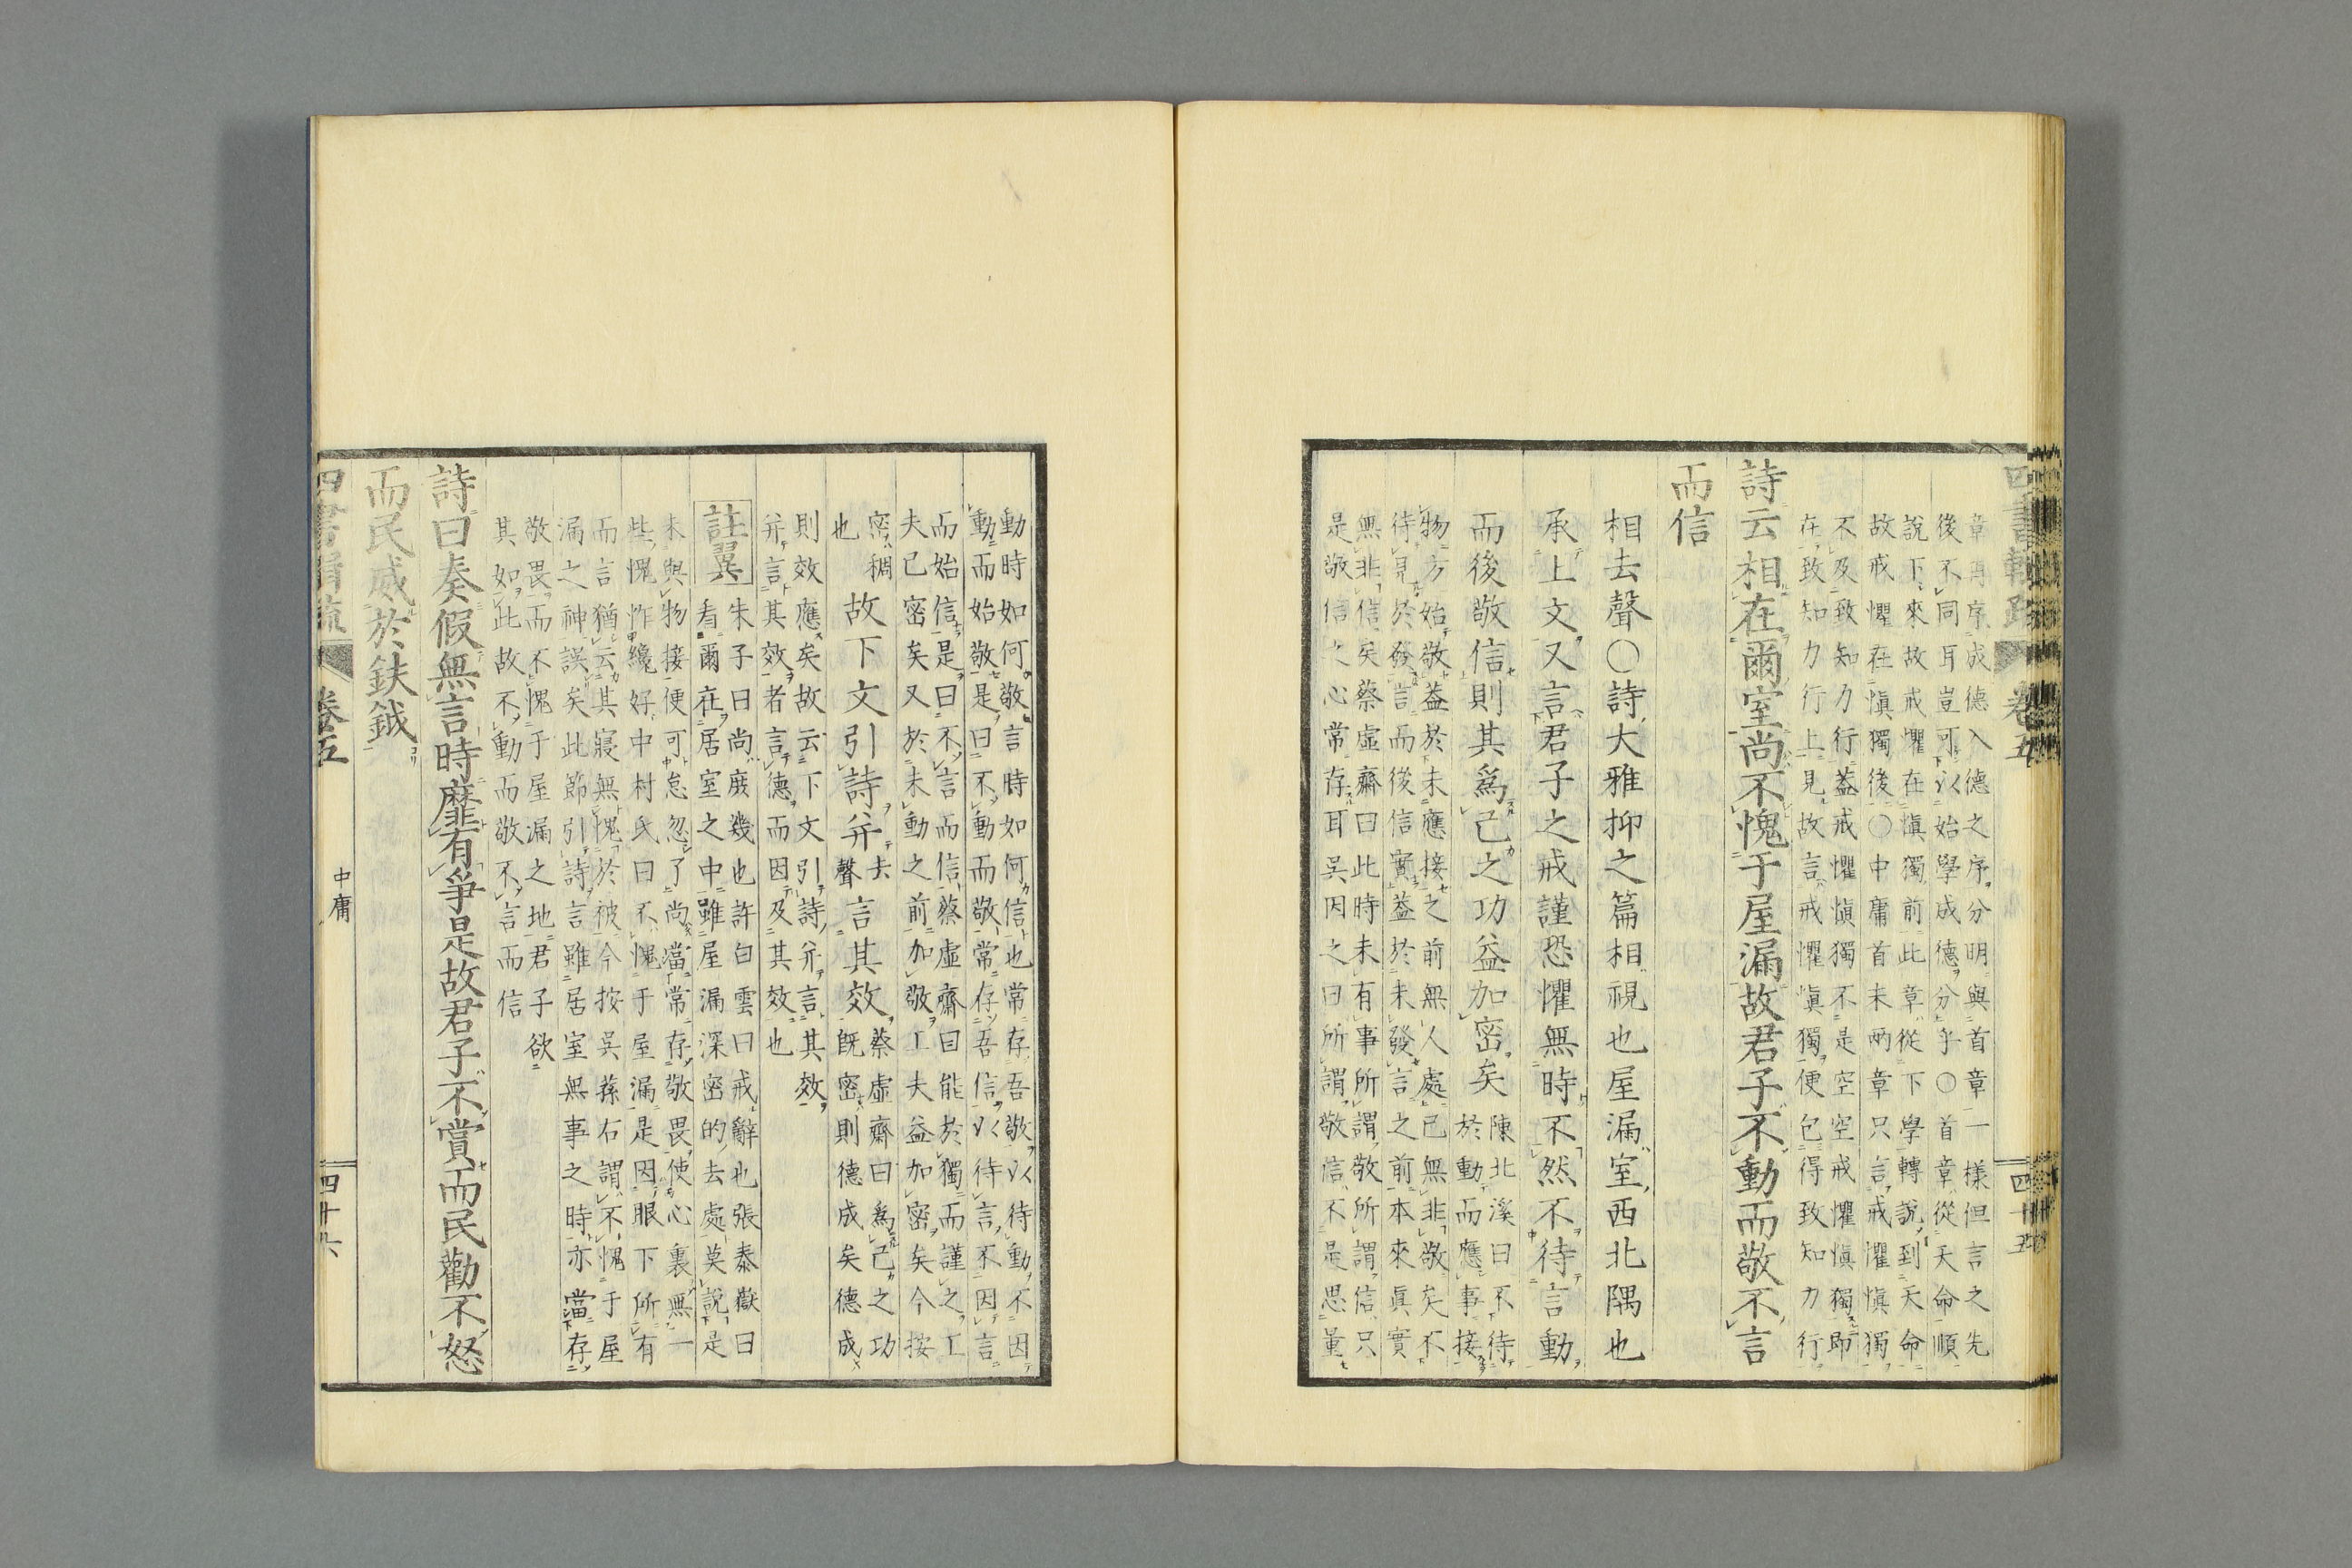 四書輯疏
卷五
四十五
章再序成德入德之序分明與首章一樣但言之先
後不同耳豈可以始學成德分乎〇首章從天命順
說下來故戒懼在愼獨前此章從下學轉說到天命
故戒懼在愼獨後〇中庸首末兩章只言戒懼愼獨
不及致知力行蓋戒懼愼獨不是空空戒懼愼獨即
在致知力行上見故言戒懼愼獨便包得致知力行
詩云相在爾室尚不愧于屋漏故君子不動而敬不言
而信
相去聲〇詩大雅抑之篇相視也屋漏室西北隅也
承上文又言君子之戒謹恐懼無時不然不待言動
而後敬信則其爲己之功益加密矣
陳北溪曰不待
於動而應事接
物方始敬蓋於未應接之前無人處已無非敬矣不
待見於發言而後信實蓋於未發言之前本來眞實
無非信矣蔡虛齋曰此時未有事所謂敬所謂信只
是敬信之心常存耳吳因之曰所謂敬信不是思量
動時如何敬言時如何信也常存吾敬以待動不因
動而始敬是曰不動而敬常存吾信以待言不因言
而始信是曰不言而信蔡虛齋曰能於獨而謹之工
夫已密矣又於未動之前加敬工夫益加密矣今按
密稠
也
故下文引詩并
去
聲
言其效
蔡虛齋曰爲己之功
旣密則德成矣德成
則效應矣故云下文引詩并言其效
并言其效者言德而因及其效也
註翼
朱子曰尚庶幾也許白雲曰戒辭也張泰嶽曰
看爾在居室之中雖屋漏深密的去處莫說是
未與物接便可怠忽了尚當常存敬畏使心裏無一
些愧怍纔好中村氏曰不愧于屋漏是因眼下所有
而言猶云其寢無愧於被今按吳蓀右謂不愧于屋
漏之神誤矣此節引詩言雖居室無事之時亦當存
敬畏而不愧于屋漏之地君子欲
其如此故不動而敬不言而信
詩曰奏假無言時靡有爭是故君子不賞而民勸不怒
而民威於鈇鉞
四書輯疏
卷五
中庸
四十六